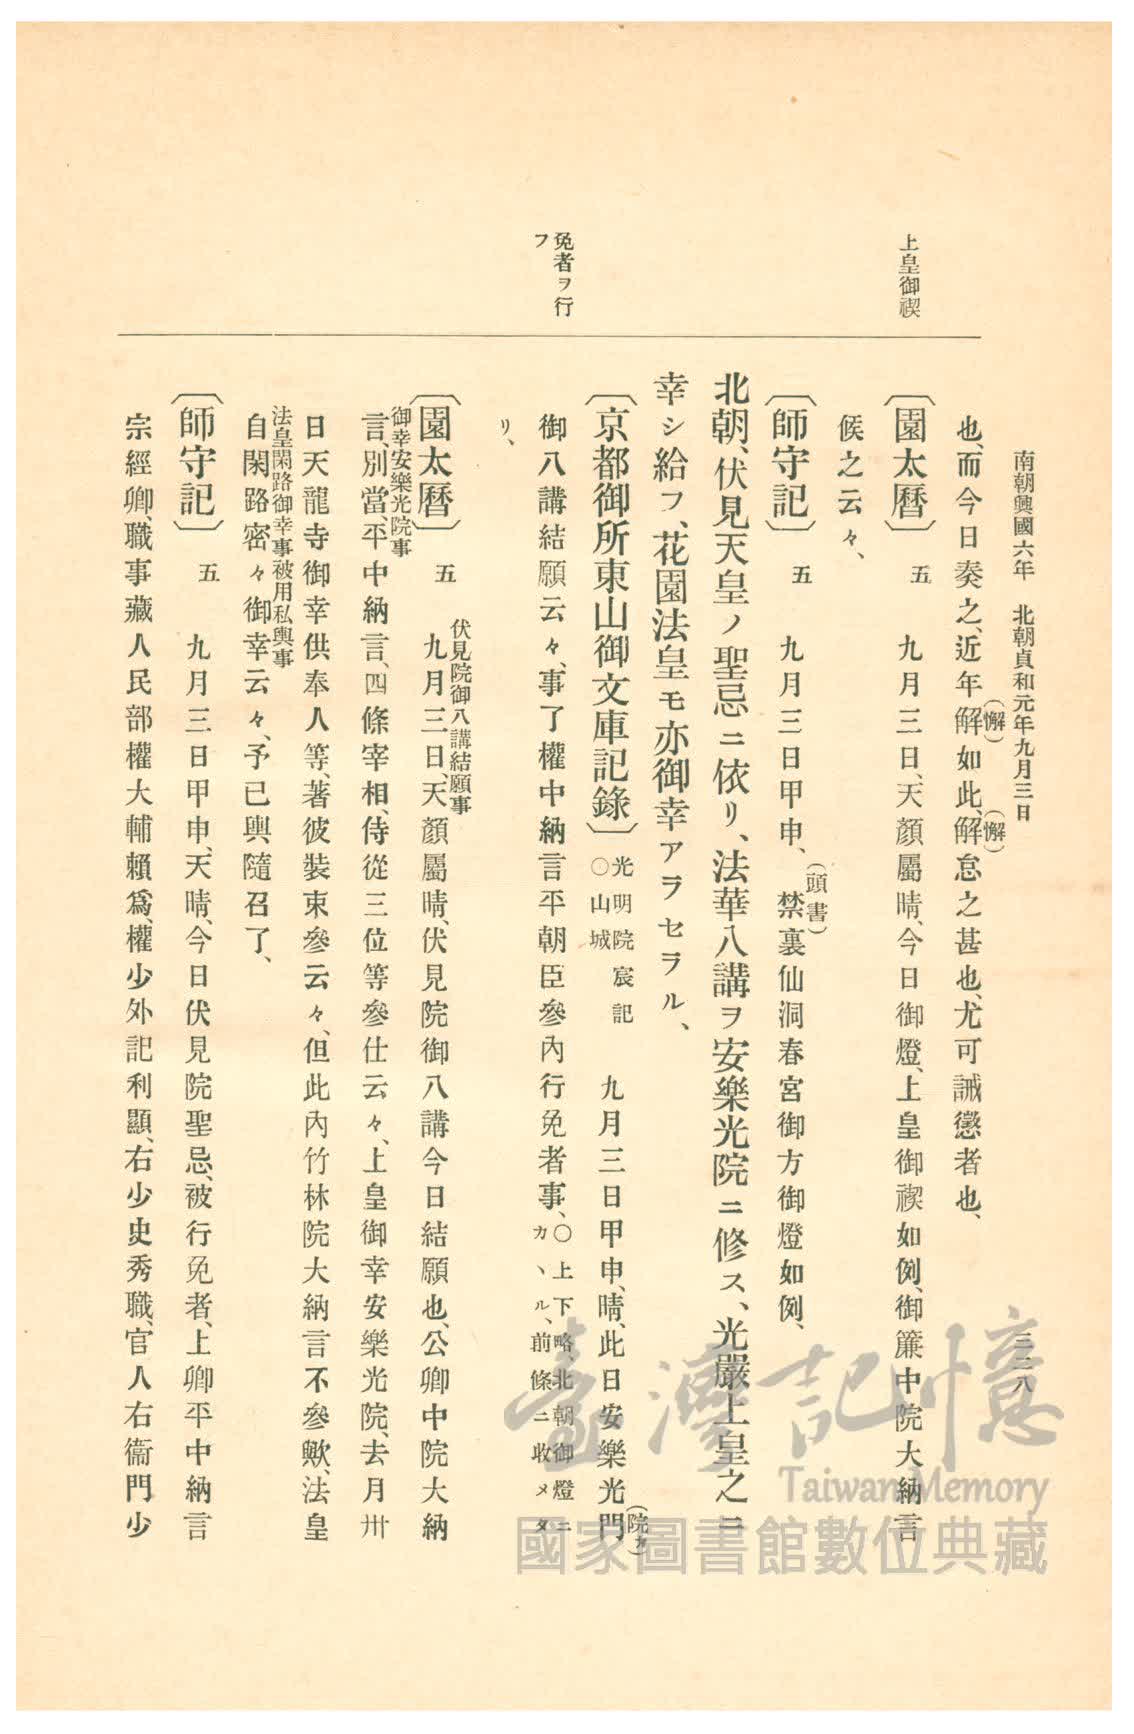 南朝興國六年　北朝貞和元年九月三日　三二八
上皇御禊
免者ヲ行
フ
也、而今日奏之、近年解(懈)如此、解(懈)怠之甚也、尤可誡懲者也、
〔園太曆〕五　九月三日、天顏屬晴、今日御燈、上皇御禊如例、御簾中院大納言
候之云々、
〔師守記〕五　九月三日甲申、(頭書)禁裏仙洞春宮御方御燈如例、
北朝、伏見天皇ノ聖忌ニ依リ、法華八講ヲ安樂光院ニ修ス、光嚴上皇之ニ
幸シ給フ、花園法皇モ亦御幸アラセラル、
〔京都御所東山御文庫記錄〕光明院宸記○山城　九月三日甲申、晴、此日安樂光門(院カ)
御八講結願云々、事了權中納言平朝臣參內行免者事、○上下略、北朝御燈ニカヽル、前條ニ收メタ
リ、
〔園太曆〕五　伏見院御八講結願事　九月三日、天顏屬晴、伏見院御八講今日結願也、公卿中院大納
御幸安樂光院事
言、別當、平中納言、四條宰相、侍從三位等參仕云々、上皇御幸安樂光院、去月卅
日天龍寺御幸供奉人等、著彼裝束參云々、但此內竹林院大納言不參歟、法皇
法皇閑路御幸事被用私輿事
自閑路密々御幸云々、予已輿隨召了、
〔師守記〕五　九月三日甲申、天晴、今日伏見院聖忌、被行免者、上卿平中納言
宗經卿、職事藏人民部權大輔賴爲、權少外記利顯、右少史秀職、官人右衞門少
臺灣記憶
Taiwan Memory
國家圖書館數位典藏